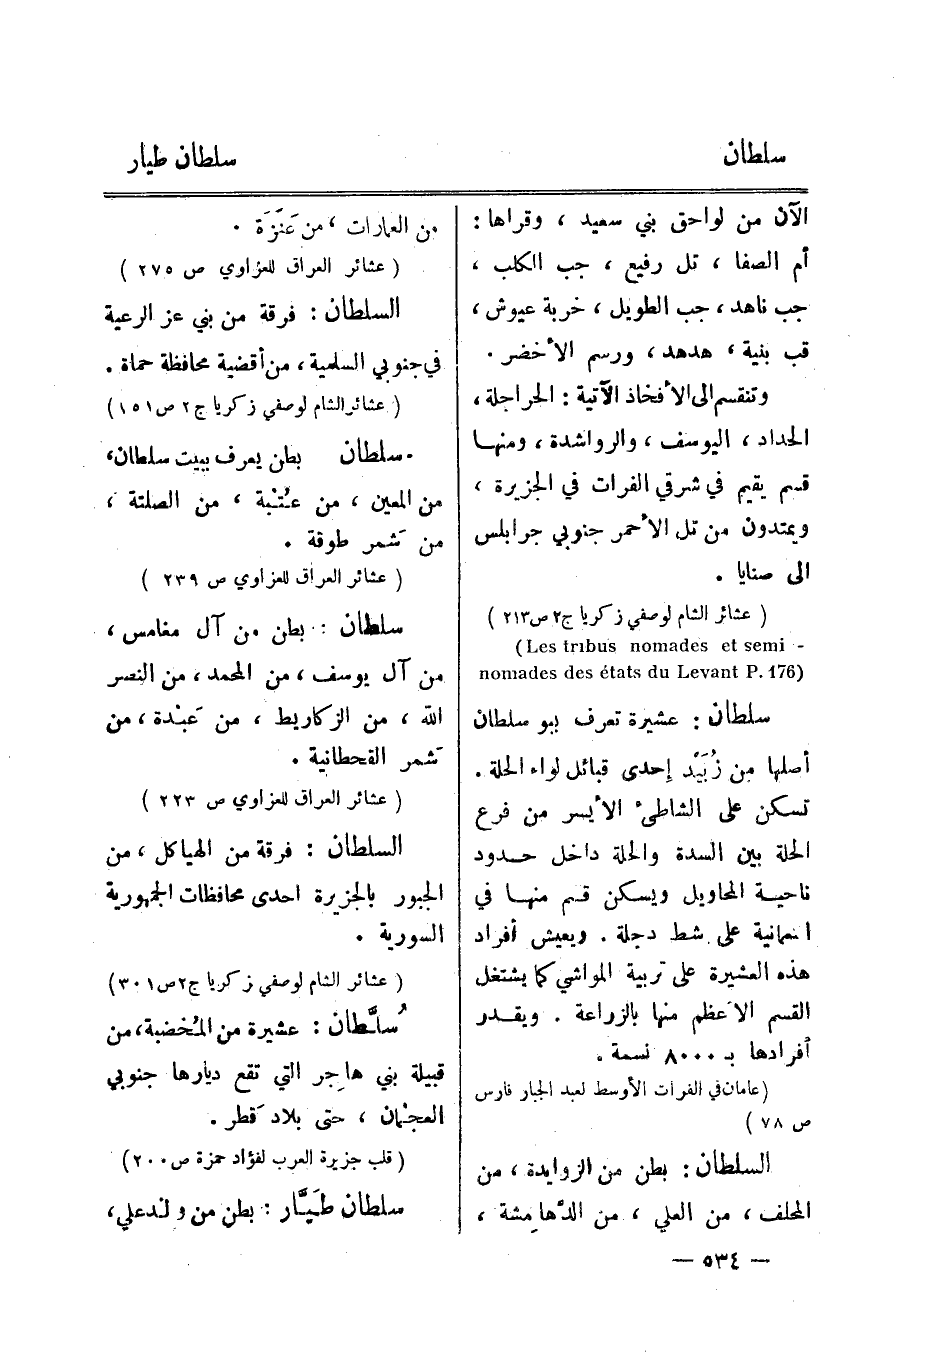 سلطان
سلطان طيار
الآن من لواحق بني سعيد ، وقراها :
أم الصفا ، تل رفيع ، جب الكلب ،
جب ناهد ، جب الطويل ، خربة عيوش ،
قب بنية ، هدهد ، ورسم الأخضر .
وتنقسم الى الأفخاذ الآتية : الحراجلة ،
الحداد ، اليوسف ، والرواشدة ، ومنهـا
قسم يقيم في شرقي الفرات في الجزيرة ،
ويمتدون من تل الأحمر جنوبي جرابلس
الى صنايا .
( عشائر الشام لوصفي زكريا ج٢ ص٢١٣ )
(Les tribus nomades et semi -
nomades des états du Levant P. 176)
سلطان : عشيرة تعرف ببو سلطان
أصلها من زُبَيْد إحدى قبائل لواء الحلة .
تسكن على الشاطىء الأيسر من فرع
الحلة بين السدة والحلة داخل حـدود
ناحيـة المحاويل ويسكن قـم منهـا في
النعمانية على شط دجلة . ويعيش أفراد
هذه العشيرة على تربية المواشي كما يشتغل
القسم الأعظم منها بالزراعة . ويقـدر
أفرادها بـ ٨٠٠٠ نسمة .
(عامان في الفرات الأوسط لعبد الجبار فارس
ص ٧٨ )
السلطان : بطن من الزوايدة ، من
المخلف ، من العلي ، من الدَّهامشة ،
من العمارات ، من عَنَزَة .
( عشائر العراق للعزاوي ص ٢٧٥ )
السلطان : فرقة من بني عز الرعية
في جنوبي السلمية ، من أقضية محافظة حماة .
( عشائر الشام لوصفي زكريا ج٢ ص١٥١ )
سلطان بطن يعرف ببيت سلطان ،
من المعين ، من عُتْبة ، من الصلتة ،
من شَمر طوقة .
( عشائر العراق للعزاوي ص ٢٣٩ )
سلطان : بطن من آل مغامس ،
من آل يوسف ، من المحمد ، من النصر
الله ، من الزكاريط ، من عَبْدة ، من
شَمر القحطانية .
( عشائر العراق للعزاوي ص ٢٢٣ )
السلطان : فرقة من الهياكل ، من
الجبور بالجزيرة احدى محافظات الجمهورية
السورية .
( عشائر الشام لوصفي زكريا ج٢ ص٣٠١ )
سُلَّطان : عشيرة من المُخضبة ، من
قبيلة بني هاجر التي تقع ديارها جنوبي
العجْمان ، حتى بلاد قَطر .
( قلب جزيرة العرب لفؤاد حمزة ص٢٠٠ )
سلطان طَيَّار : بطن من ولد علي ،
— ٥٣٤ —